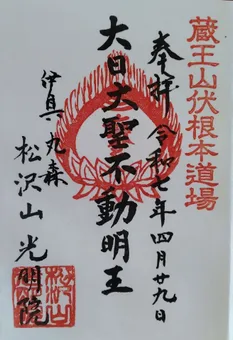 蔵王山伏根本道場
奉拝 令和七年四月廿九日
大日大聖不動明王
伊具 丸森
松沢山 光明院